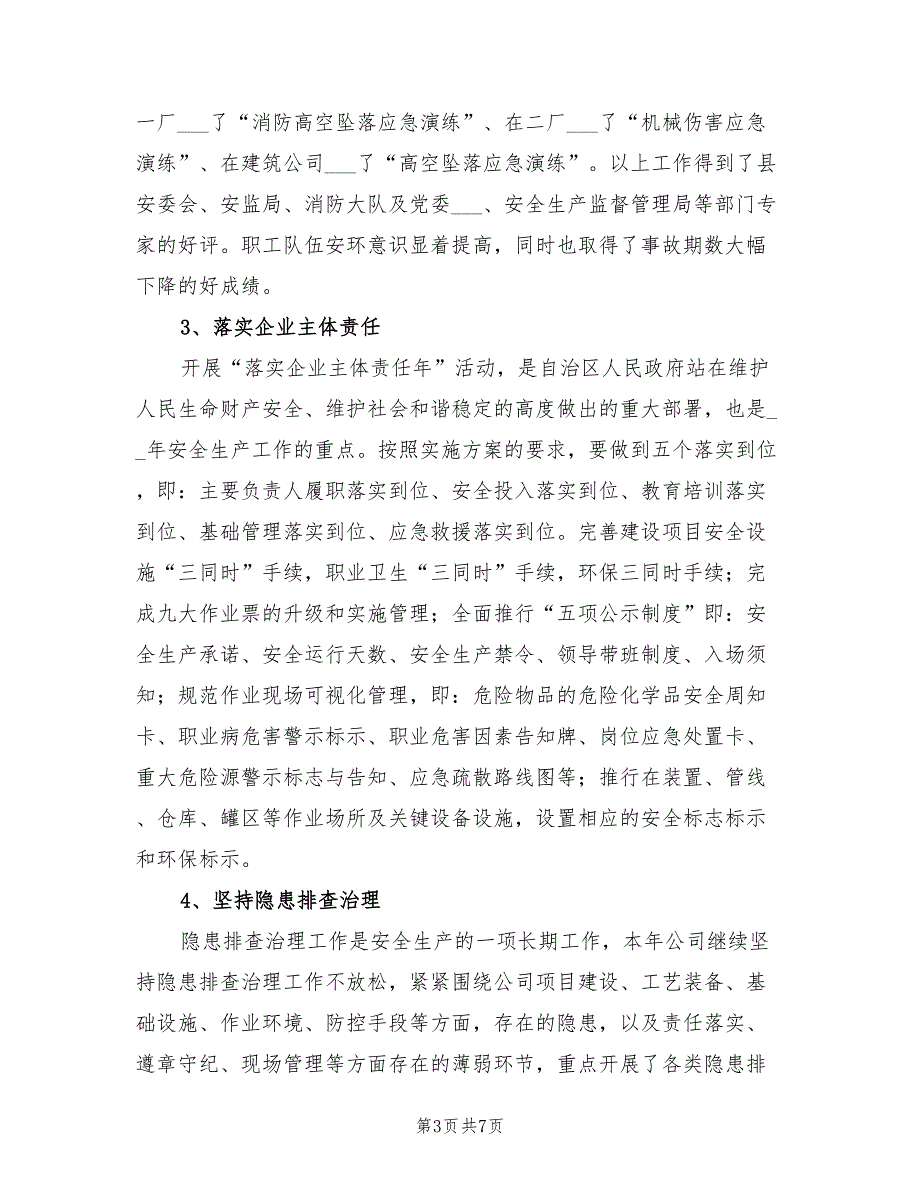 一厂___了“消防高空坠落应急演练”、在二厂___了“机械伤害应急
演练”、在建筑公司___了“高空坠落应急演练”。以上工作得到了县
安委会、安监局、消防大队及党委___、安全生产监督管理局等部门专
家的好评。职工队伍安环意识显着提高，同时也取得了事故期数大幅
下降的好成绩。
3、落实企业主体责任
开展“落实企业主体责任年”活动，是自治区人民政府站在维护
人民生命财产安全、维护社会和谐稳定的高度做出的重大部署，也是_
__年安全生产工作的重点。按照实施方案的要求，要做到五个落实到位
，即：主要负责人履职落实到位、安全投入落实到位、教育培训落实
到位、基础管理落实到位、应急救援落实到位。完善建设项目安全设
施“三同时”手续，职业卫生“三同时”手续，环保三同时手续；完
成九大作业票的升级和实施管理；全面推行“五项公示制度”即：安
全生产承诺、安全运行天数、安全生产禁令、领导带班制度、入场须
知；规范作业现场可视化管理，即：危险物品的危险化学品安全周知
卡、职业病危害警示标示、职业危害因素告知牌、岗位应急处置卡、
重大危险源警示标志与告知、应急疏散路线图等；推行在装置、管线
、仓库、罐区等作业场所及关键设备设施，设置相应的安全标志标示
和环保标示。
4、坚持隐患排查治理
隐患排查治理工作是安全生产的一项长期工作，本年公司继续坚
持隐患排查治理工作不放松，紧紧围绕公司项目建设、工艺装备、基
础设施、作业环境、防控手段等方面，存在的隐患，以及责任落实、
遵章守纪、现场管理等方面存在的薄弱环节，重点开展了各类隐患排
第3页共7页